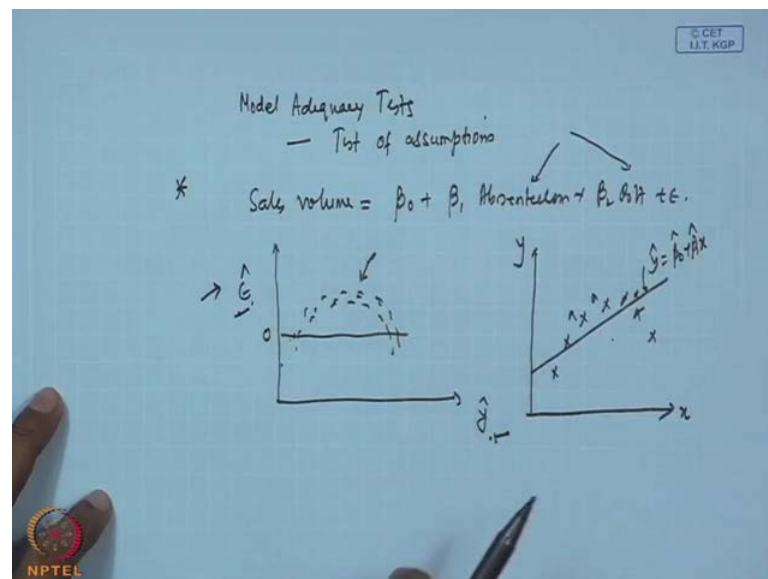 © CET
I.I.T. KGP
Model Adequacy Tests
— Test of assumptions
* Sales volume = β0 + β1 Absenteeism + β2 + ε.
ε̂
0
ŷ
y
ŷ = β̂0 + β̂x
x
NPTEL